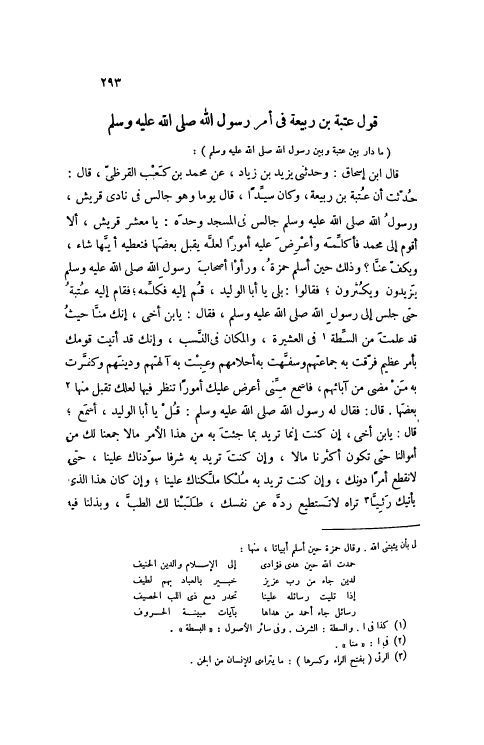 ٢٩٣
قول عتبة بن ربيعة فى أمر رسول الله صلى الله عليه وسلم
( ما دار بين عتبة وبين رسول الله صلى الله عليه وسلم ) :
قال ابن إسحاق : وحدثنى يزيد بن زياد ، عن محمد بن كَعْب القرظىّ ، قال :
حُدّثت أن عُتبة بن ربيعة، وكان سيدًا ، قال يوما وهو جالس فى نادى قريش ،
ورسولُ الله صلى الله عليه وسلم جالس فى المسجد وحدَه : يا معشر قريش ، ألا
أقوم إلى محمد فأكلِّمه وأعْرِضَ عليه أمورًا لعلَّه يقبل بعضَها فنعطيه أيَّها شاء ،
ويكفّ عنَّا ؟ وذلك حين أسلم حمزةُ، ورأوْا أصحابَ رسولِ الله صلى الله عليه وسلم
يزيدون ويكثُرون ؛ فقالوا : بلى يا أبا الوليد ، قُم إليه فكلِّمه؛ فقام إليه عتبةُ
حتى جلس إلى رسولِ الله صلى الله عليه وسلم ، فقال : يابن أخى ، إنك منَّا حيثُ
قد علمتَ من السِّطة ١ فى العشيرة ، والمكان فى النَّسب ، وإنك قد أتيت قومك
بأمر عظيم فرّقت به جماعتهم وسفَّهت به أحلامهم وعِبْت به آلهتهم ودينَهم وكفَّرت
به مَنْ مضى من آبائهم، فاسمع مِنِّى أعرض عليك أمورًا تنظر فيها لعلك تقبل منها ٢
بعضَها . قال : فقال له رسول الله صلى الله عليه وسلم : قُلْ يا أبا الوليد ، أسمَع ؛
قال : يابن أخى ، إن كنت إنما تريد بما جئتَ به من هذا الأمر مالا جمعنا لك من
أموالنا حتى تكون أكثرَنا مالا ، وإن كنتَ تريد به شرفا سوّدناك علينا ، حتى
لانقطع أمرًا دونك ، وإن كنت تريد به مُلْكا ملَّكناك علينا ؛ وإن كان هذا الذى
يأتيك رَئِيًّا ٣ تراه لاتستطيع ردَّه عن نفسك ، طلَبْنا لك الطبَّ ، وبذلنا فيه
لى بأن يثبتنى الله . وقال حمزة حين أسلم أبياتا ، منها :
حمدت الله حين هدى فؤادى إلى الإسلام والدين الحنيف
لدين جاء من رب عزيز خبير بالعباد بهم لطيف
إذا تليت رسائله علينا تحدر دمع ذى اللب الحصيف
رسائل جاء أحمد من هداها بآيات مبينة الحروف
(١) كذا فى ا . والسطة : الشرف . وفى سائر الأصول : « البسطة » .
(٢) فى ا : « منا » .
(٣) الرئى ( بفتح الراء وكسرها ) : ما يتراءى للإنسان من الجن .